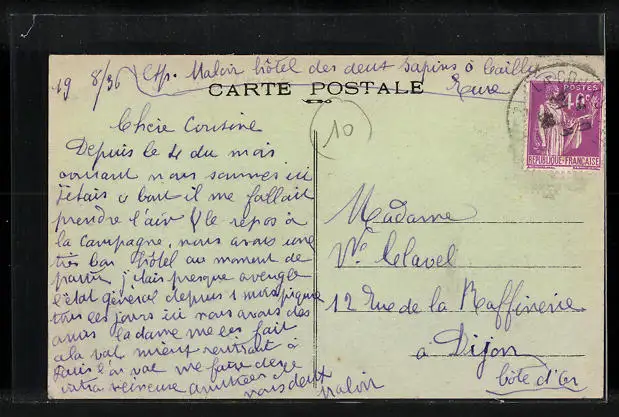 19 8/36 Exp. Maloir hôtel des deux Sapins à Caill
Eure
CARTE POSTALE
10
POSTES
40c
REPUBLIQUE FRANÇAISE
Chère Cousine
Depuis le 4 du mois
courant nous sommes ici
j'étais à bout il me fallait
prendre l'air & le repos à
la campagne, nous avons une
très bon hôtel au moment de
partir j'étais presque aveugle
l'état général depuis 1 mois
tous les jours ici nous avons des
la dame me les fait
rentrant à
Paris val me faire
nous deux
Maloir
Madame
Ve Clavel
12 Rue de la Raffinerie
à Dijon
Côte d'Or